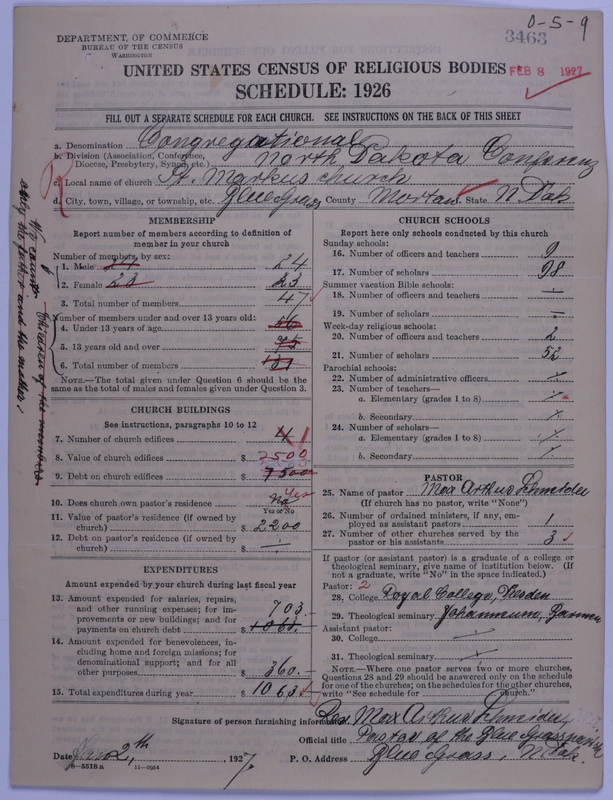 0-5-9
3463
DEPARTMENT OF COMMERCE
BUREAU OF THE CENSUS
WASHINGTON
UNITED STATES CENSUS OF RELIGIOUS BODIES
FEB 8 1927
SCHEDULE: 1926
FILL OUT A SEPARATE SCHEDULE FOR EACH CHURCH. SEE INSTRUCTIONS ON THE BACK OF THIS SHEET
a. Denomination Congregational
b. Division (Association, Conference, Diocese, Presbytery, Synod, etc.) North Dakota Conferenz
c. Local name of church St. Markus church
d. City, town, village, or township, etc. Blue Grass County Morton State N Dak
R
We count only the father and the mother.
MEMBERSHIP
Report number of members according to definition of member in your church
Number of members, by sex:
1. Male 24 24
2. Female 23 23
3. Total number of members 47
Number of members under and over 13 years old:
4. Under 13 years of age
5. 13 years old and over
6. Total number of members
NOTE.—The total given under Question 6 should be the same as the total of males and females given under Question 3.
CHURCH BUILDINGS
See instructions, paragraphs 10 to 12
7. Number of church edifices 1
8. Value of church edifices $ 2500
9. Debt on church edifices $
10. Does church own pastor's residence No Yes
Yes or No
11. Value of pastor's residence (if owned by church) $ 2200
12. Debt on pastor's residence (if owned by church) $ —
EXPENDITURES
Amount expended by your church during last fiscal year
13. Amount expended for salaries, repairs, and other running expenses; for improvements or new buildings; and for payments on church debt $ 703.— 1063.—
14. Amount expended for benevolences, including home and foreign missions; for denominational support; and for all other purposes $ 360.—
15. Total expenditures during year $ 1063.—
CHURCH SCHOOLS
Report here only schools conducted by this church
Sunday schools:
16. Number of officers and teachers 9
17. Number of scholars 98
Summer vacation Bible schools:
18. Number of officers and teachers —
19. Number of scholars —
Week-day religious schools:
20. Number of officers and teachers 2
21. Number of scholars 52
Parochial schools:
22. Number of administrative officers
23. Number of teachers—
a. Elementary (grades 1 to 8)
b. Secondary
24. Number of scholars—
a. Elementary (grades 1 to 8)
b. Secondary
PASTOR
25. Name of pastor Max Arthur Schneider
(If church has no pastor, write "None")
26. Number of ordained ministers, if any, employed as assistant pastors 1
27. Number of other churches served by the pastor or his assistants 3
If pastor (or assistant pastor) is a graduate of a college or theological seminary, give name of institution below. (If not a graduate, write "No" in the space indicated.)
Pastor: 2
28. College Royal College, Dresden
29. Theological seminary Johanneum, Barmen
Assistant pastor:
30. College
31. Theological seminary
NOTE.—Where one pastor serves two or more churches, Questions 28 and 29 should be answered only on the schedule for one of the churches; on the schedules for the other churches, write "See schedule for church."
Signature of person furnishing information Rev. Max Arthur Schneider
Official title Pastor of the Blue Grass
Date Jan. 2th, 1927.
P. O. Address Blue Grass, N Dak.
8-5518 a 11-9054